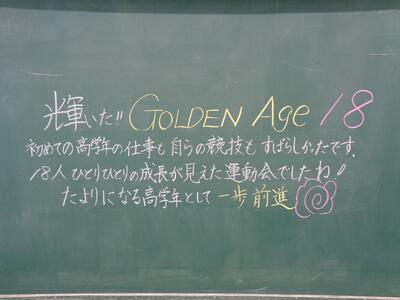 輝いた!! GOLDEN Age 18
初めての高学年の仕事も自らの競技もすばらしかったです。
18人ひとりひとりの成長が見えた運動会でしたね!
たよりになる高学年として一歩前進